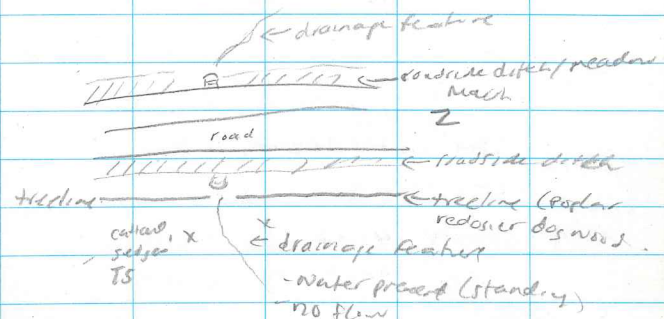 ← drainage feature
← roadside ditch/meadow
marsh
Z
road
← roadside ditch
treeline
← treeline (poplar
redosier dogwood.
cattail, x
sedges
TS
x
← drainage feature
- water present (standing)
- no flow